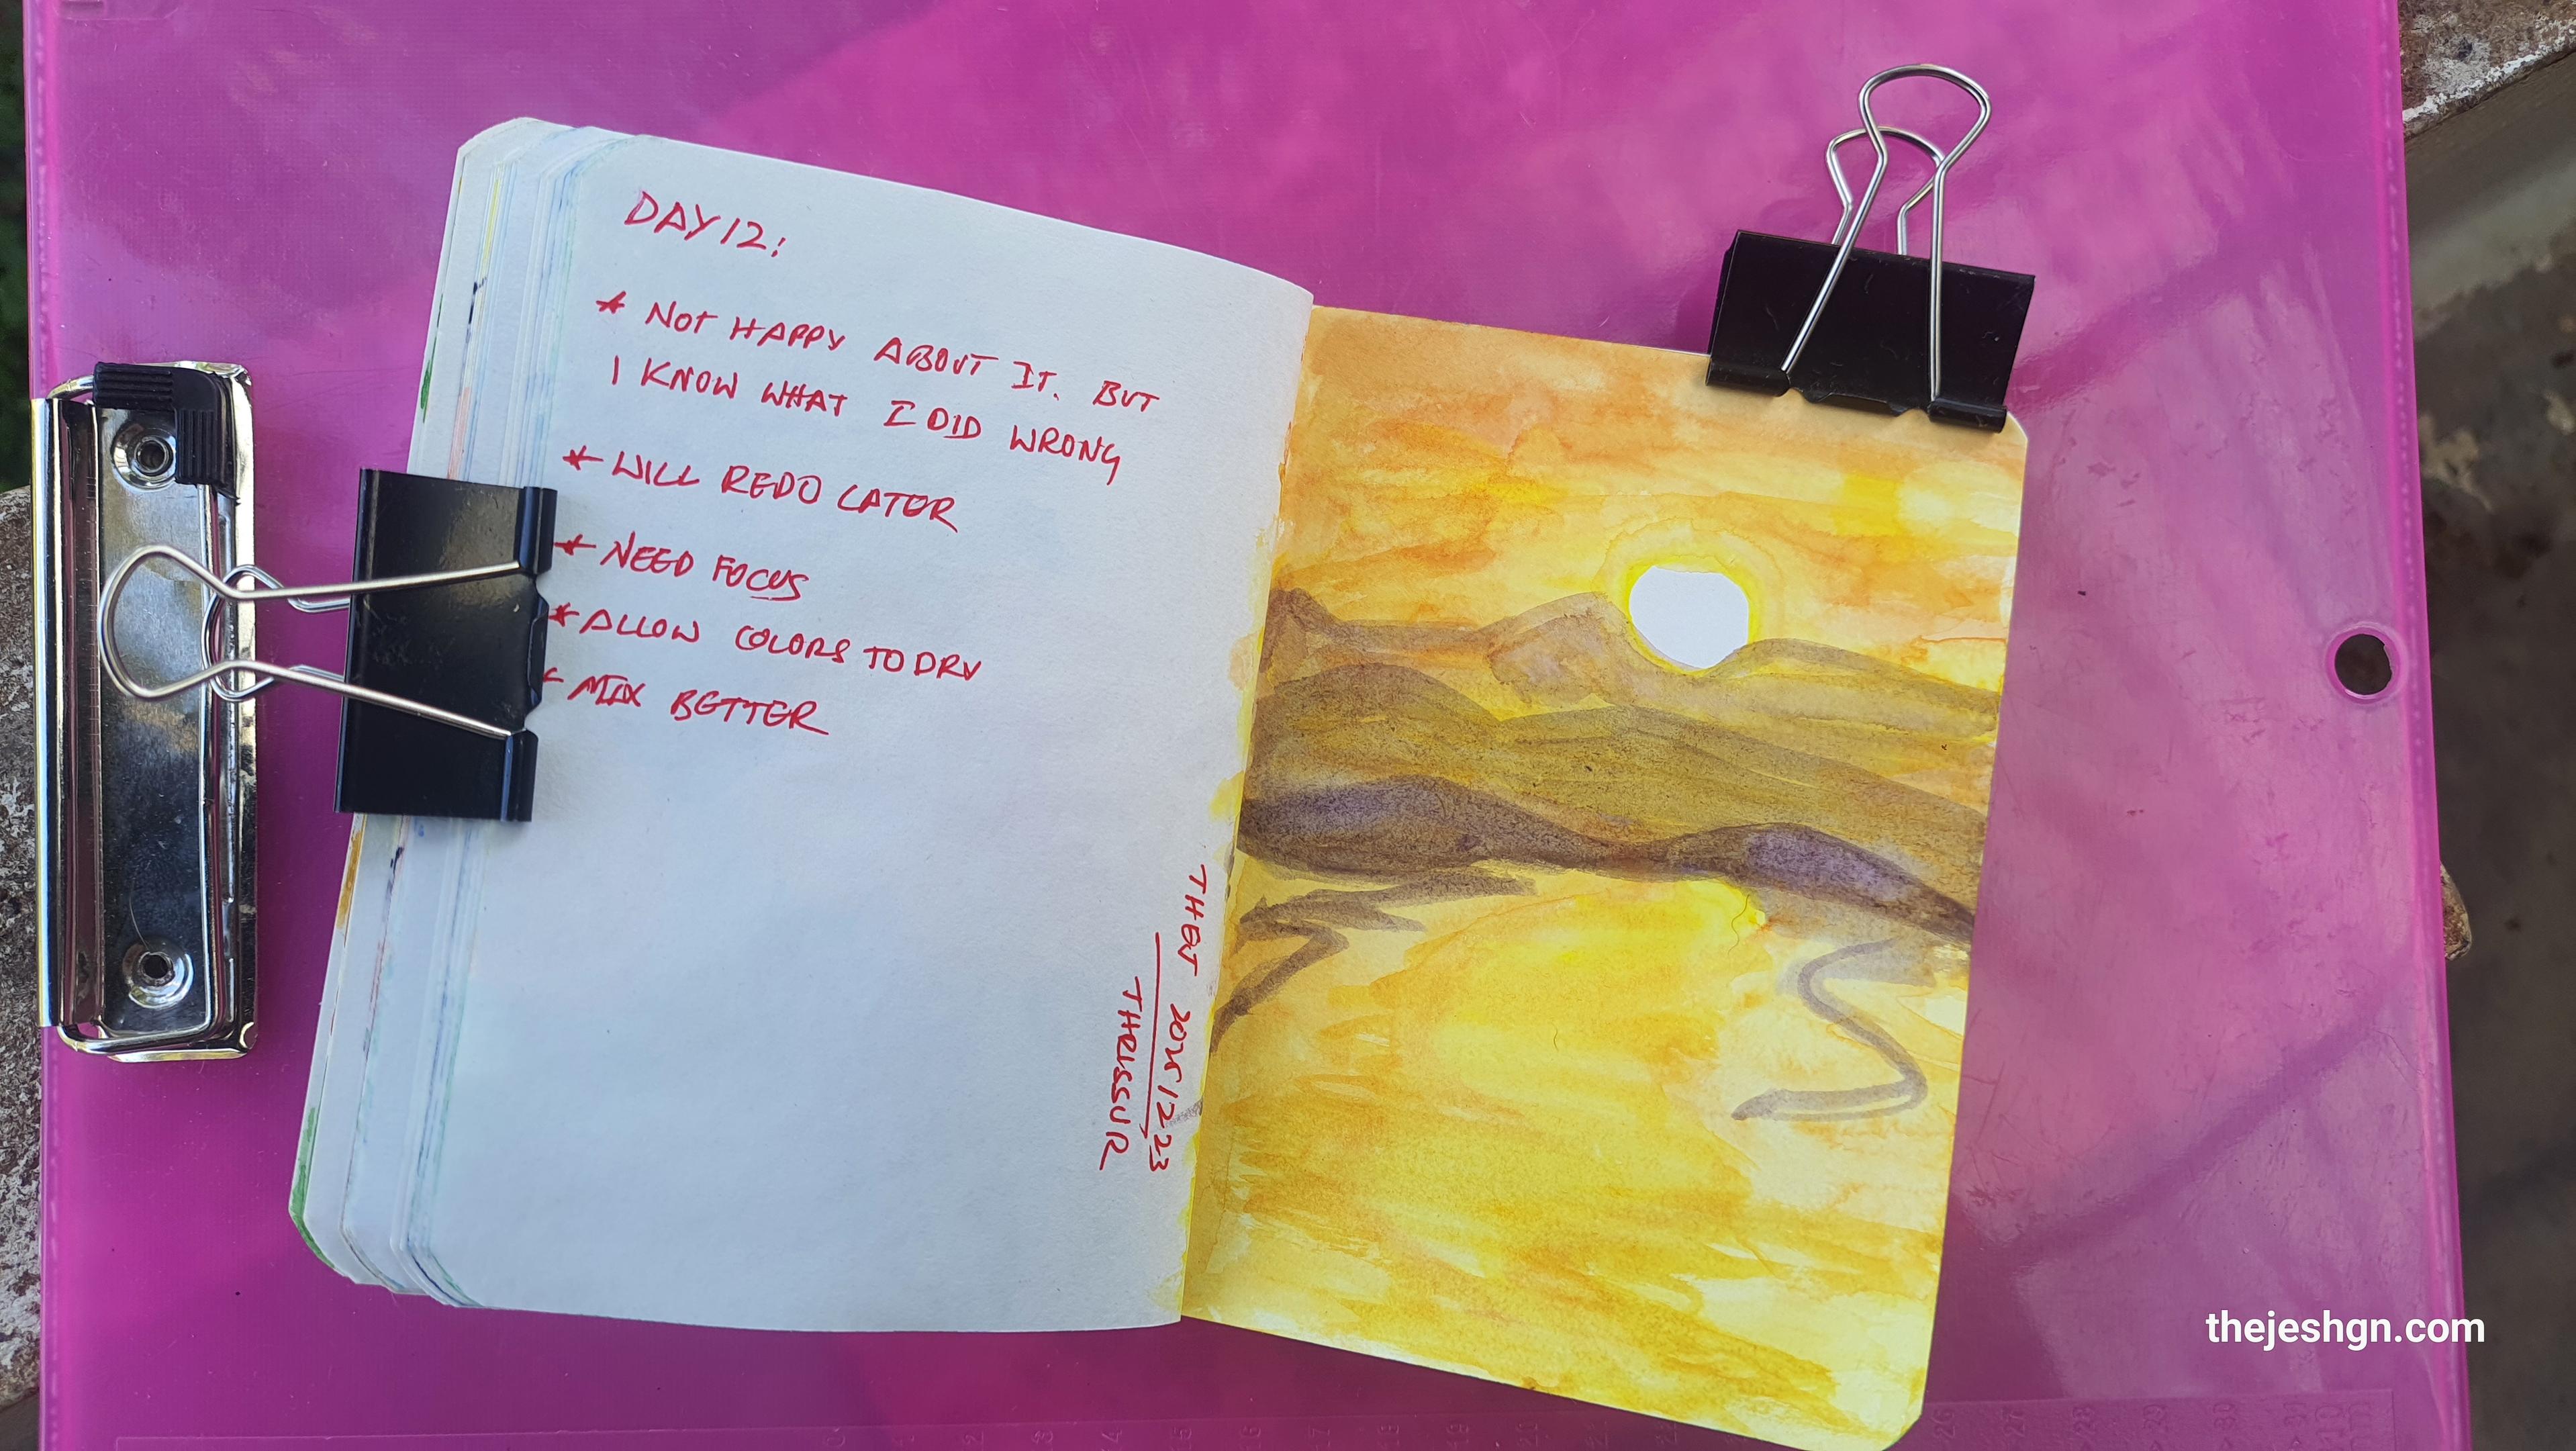 DAY 12:
* NOT HAPPY ABOUT IT. BUT
I KNOW WHAT I DID WRONG
* WILL REDO LATER
* NEED FOCUS
* ALLOW COLORS TO DRY
* MIX BETTER
THEJ 20251223
THRISSUR
thejeshgn.com